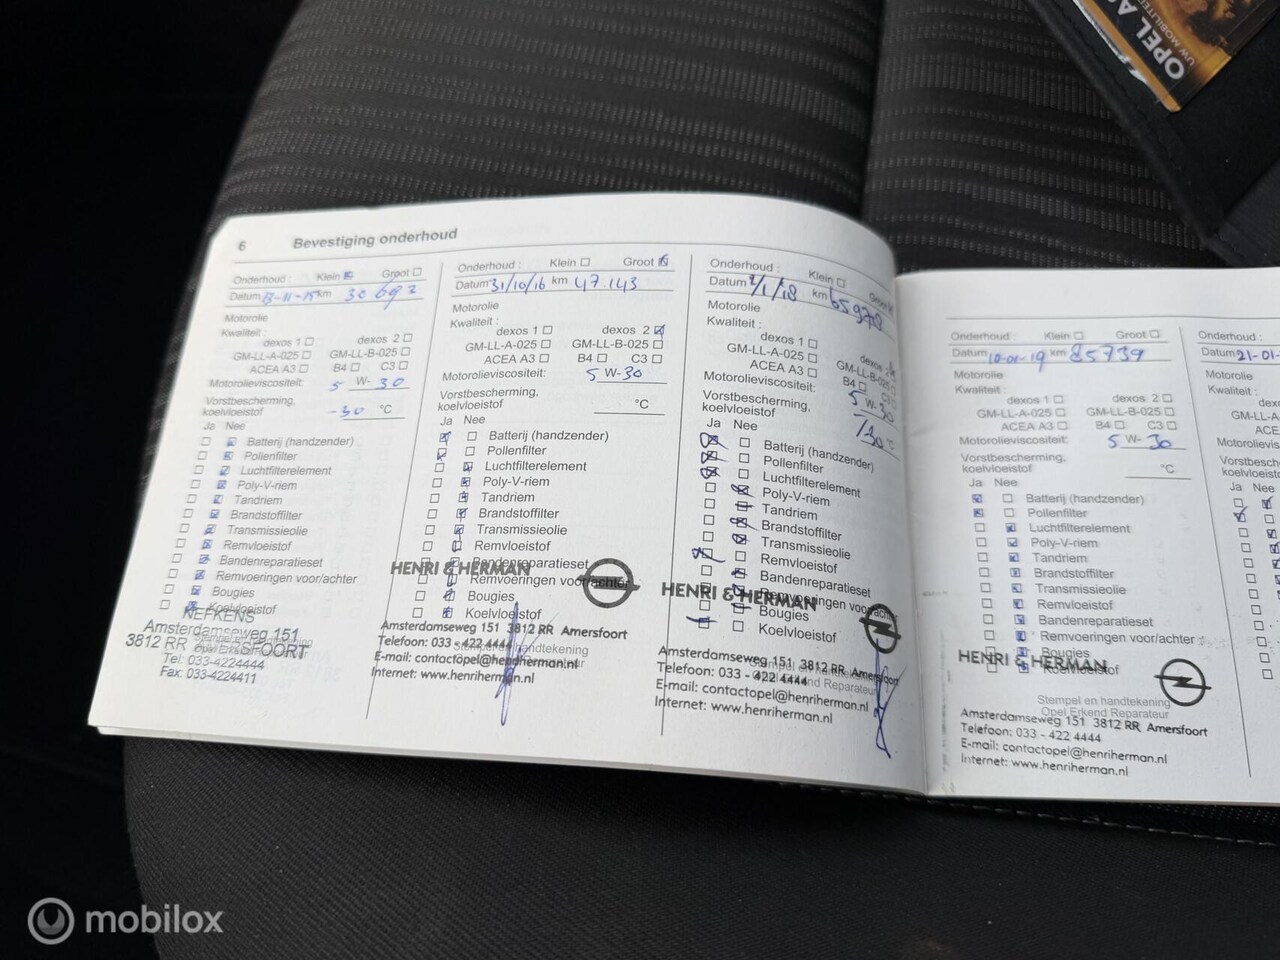 OPEL
UW MOBILITEI
6 Bevestiging onderhoud
Onderhoud : Klein Groot
Datum 13-11-15 km 30692
Motorolie
Kwaliteit :
dexos 1 dexos 2
GM-LL-A-025 GM-LL-B-025
ACEA A3 B4 C3
Motorolieviscositeit: 5 W- 30
Vorstbescherming,
koelvloeistof -30 °C
Ja Nee
Batterij (handzender)
Pollenfilter
Luchtfilterelement
Poly-V-riem
Tandriem
Brandstoffilter
Transmissieolie
Remvloeistof
Bandenreparatieset
Remvoeringen voor/achter
Bougies
Koelvloeistof
NEFKENS
Amsterdamseweg 151
3812 RR
Tel: 033-4224444
Fax: 033-4224411
Onderhoud : Klein Groot
Datum 31/10/16 km 47.143
Motorolie
Kwaliteit :
dexos 1 dexos 2
GM-LL-A-025 GM-LL-B-025
ACEA A3 B4 C3
Motorolieviscositeit: 5 W-30
Vorstbescherming,
koelvloeistof °C
Ja Nee
Batterij (handzender)
Pollenfilter
Luchtfilterelement
Poly-V-riem
Tandriem
Brandstoffilter
Transmissieolie
Remvloeistof
Bandenreparatieset
Remvoeringen voor/achter
Bougies
Koelvloeistof
HENRI & HERMAN
Amsterdamseweg 151 3812 RR Amersfoort
Telefoon: 033 - 422 4444
E-mail: contactopel@henriherman.nl
Internet: www.henriherman.nl
Onderhoud : Klein Groot
Datum /1/18 km
Motorolie
Kwaliteit :
dexos 1 dexos
GM-LL-A-025 GM-LL-B-025
ACEA A3 B4 C3
Motorolieviscositeit: 5 W-30
Vorstbescherming,
koelvloeistof °C
Ja Nee
Batterij (handzender)
Pollenfilter
Luchtfilterelement
Poly-V-riem
Tandriem
Brandstoffilter
Transmissieolie
Remvloeistof
Bandenreparatieset
Remvoeringen voor/achter
Bougies
Koelvloeistof
HENRI & HERMAN
Amsterdamseweg 151 3812 RR Amersfoort
Telefoon: 033 - 422 4444
E-mail: contactopel@henriherman.nl
Internet: www.henriherman.nl
Onderhoud : Klein Groot
Datum 10-01-19 km 85739
Motorolie
Kwaliteit :
dexos 1 dexos 2
GM-LL-A-025 GM-LL-B-025
ACEA A3 B4 C3
Motorolieviscositeit: 5 W- 30
Vorstbescherming,
koelvloeistof °C
Ja Nee
Batterij (handzender)
Pollenfilter
Luchtfilterelement
Poly-V-riem
Tandriem
Brandstoffilter
Transmissieolie
Remvloeistof
Bandenreparatieset
Remvoeringen voor/achter
Bougies
Koelvloeistof
HENRI & HERMAN
Stempel en handtekening
Opel Erkend Reparateur
Amsterdamseweg 151 3812 RR Amersfoort
Telefoon: 033 - 422 4444
E-mail: contactopel@henriherman.nl
Internet: www.henriherman.nl
Onderhoud :
Datum 21-01-
Motorolie
Kwaliteit :
dexo
GM-LL-A
ACE
Motorolievis
Vorstbesche
koelvloeisto
Ja Nee
mobilox